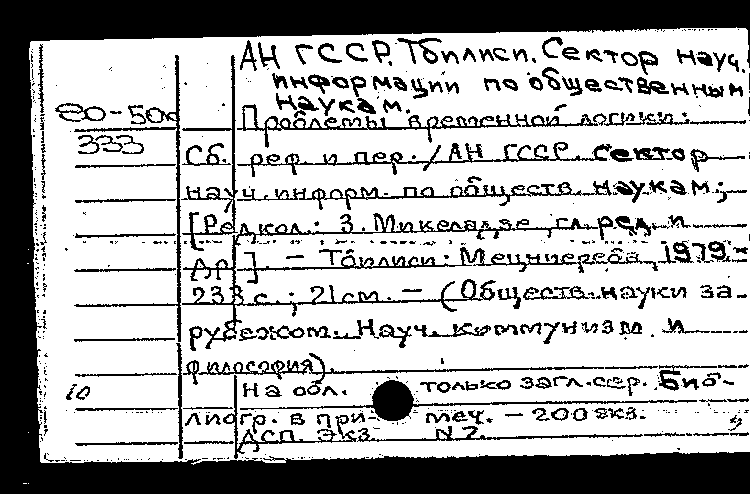 АН ГССР. Тбилиси. Сектор науч.
информации по общественным
наукам.
80-50к
Проблемы временной логики:
333
Сб. реф. и пер. / АН ГССР. Сектор
науч. информ. по обществ. наукам;
[Редкол.: З. Микеладзе, гл. ред. и
др]. - Тбилиси: Мецниереба, 1979 -
238 с.; 21 см. - (Обществ. науки за
рубежом. Науч. коммунизм и
философия).
10
На обл. только загл. сер. Биб-
лиогр. в примеч. - 200 экз.
ДСП. Экз. N 7.